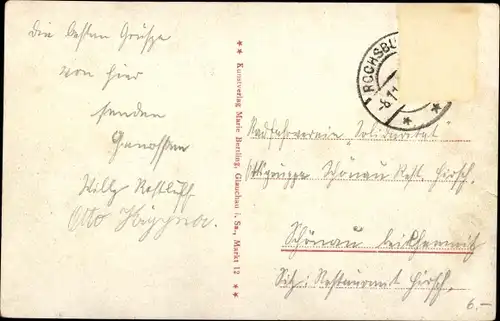 Die besten Grüße
von hier
senden
Genossen
Willy
Otto
** Kunstverlag Marie Berding, Glauchau i. Sa., Markt 12 **
ROCHSBU
Radfahrverein „Solidarität"
Ortsgruppe Schönau Rest. Hirsch.
Schönau bei Chemnitz
Sitz: Restaurant Hirsch.
6.-